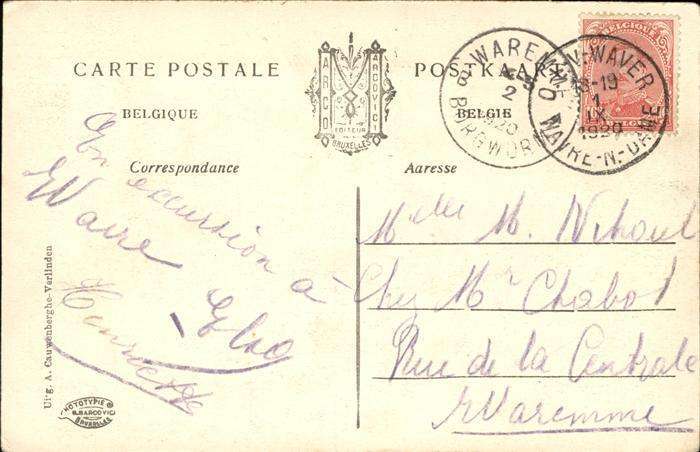 CARTE POSTALE
POSTKAART
BELGIQUE
BELGIE
Correspondance
Adresse
ARCO
MARCOVICI
EDITEUR
BRUXELLES
BELGIQUE
WAREMME
2
1920
BORGWORM
N-WAVER
18-19
1
IX
1920
WAVRE-N-DAME
En excursion à
Wavre
Henriette
Melle M. Nihoul
Chez Mr Chabot
Rue de la Centrale
Waremme
Uitg. A. Cauwenberghe-Verlinden
PHOTOTYPIE
MARCOVICI
BRUXELLES